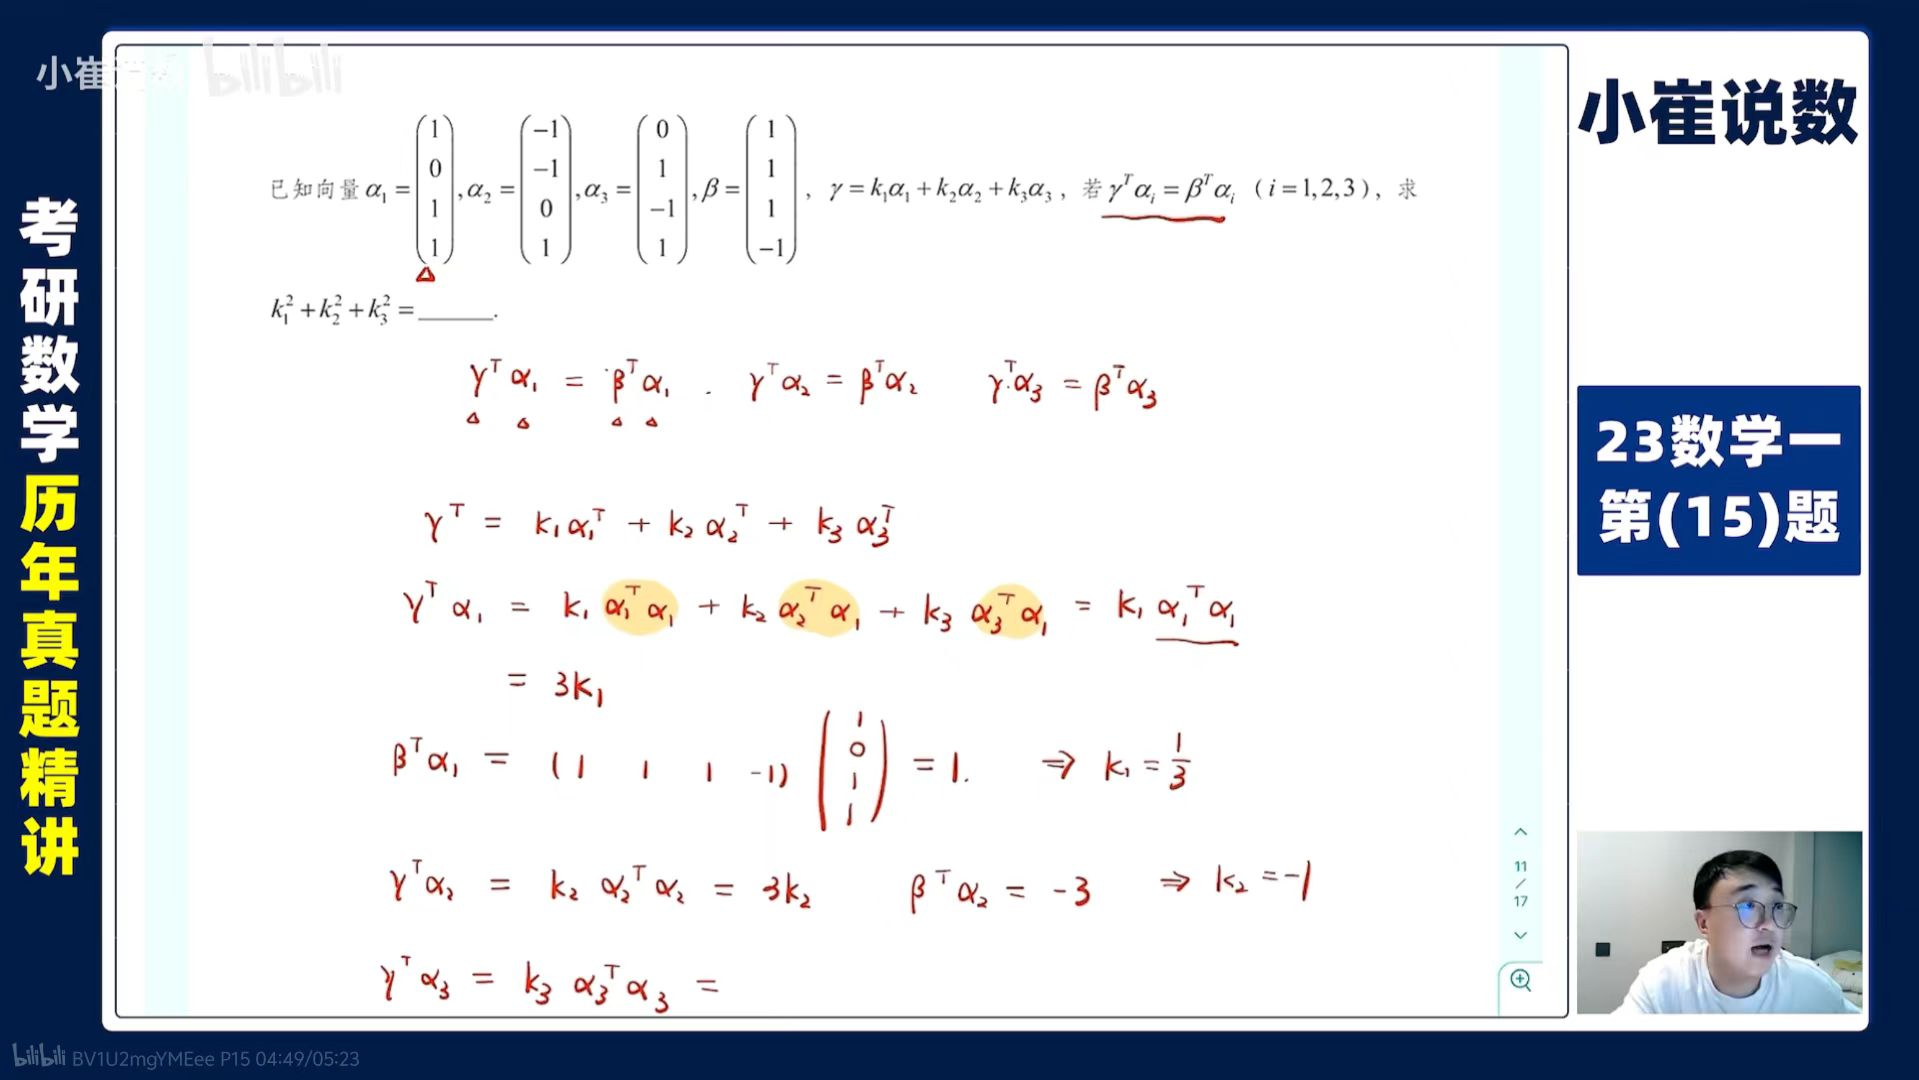 小崔说数 bilibili
小崔说数
考研数学历年真题精讲
23数学一
第(15)题
已知向量 α₁ = (1 0 1 1), α₂ = (−1 −1 0 1), α₃ = (0 1 −1 1), β = (1 1 1 −1), γ = k₁α₁ + k₂α₂ + k₃α₃, 若 γᵀαᵢ = βᵀαᵢ (i = 1,2,3), 求
k₁² + k₂² + k₃² = ______.
γᵀα₁ = βᵀα₁ . γᵀα₂ = βᵀα₂ γᵀα₃ = βᵀα₃
γᵀ = k₁α₁ᵀ + k₂α₂ᵀ + k₃α₃ᵀ
γᵀα₁ = k₁α₁ᵀα₁ + k₂α₂ᵀα₁ + k₃α₃ᵀα₁ = k₁α₁ᵀα₁
= 3k₁
βᵀα₁ = (1 1 1 -1) (1 0 1 1) = 1. ⇒ k₁ = 1/3
γᵀα₂ = k₂α₂ᵀα₂ = 3k₂ βᵀα₂ = -3 ⇒ k₂ = -1
γᵀα₃ = k₃α₃ᵀα₃ =
11
/
17
bilibili BV1U2mgYMEee P15 04:49/05:23